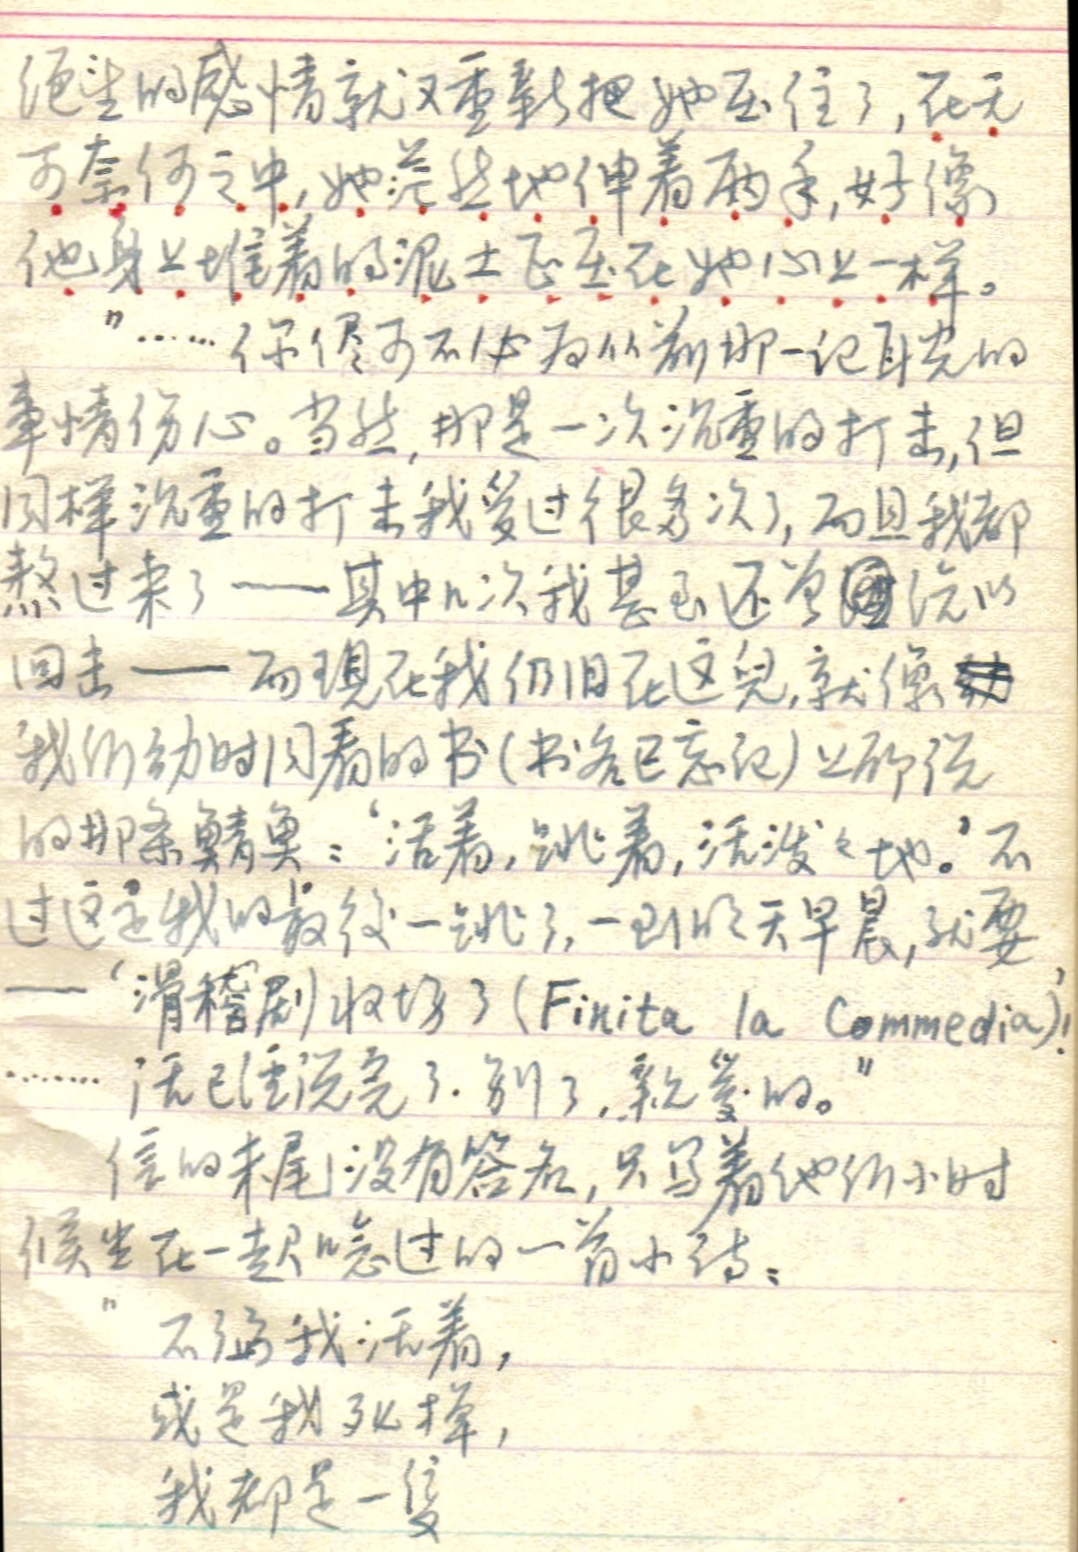 绝望的感情就又重新把她压住了，在无
可奈何之中，她茫然地伸着两手，好像
他身上堆着的泥土正压在她心上一样。
"……你侭可不必为从前那一记耳光的
事情伤心。当然，那是一次沉重的打击，但
同样沉重的打击我受过很多次了，而且我都
熬过来了——其中几次我甚至还曾 给以
回击——而現在我仍旧在这兒，就像
我们幼时同看的书（书名已忘记）上所说
的那条鯖魚：‘活着，跳着，活泼々地。’不
过这是我的最後一跳了，一到明天早晨，就要
——‘滑稽剧收场了（Finita la Commedia）！’
……… 话已经说完了．别了，親愛的。"
信的末尾没有签名，只写着他们小时
候坐在一起唸过的一首小诗：
"不论我活着，
或是我死掉，
我都是一隻